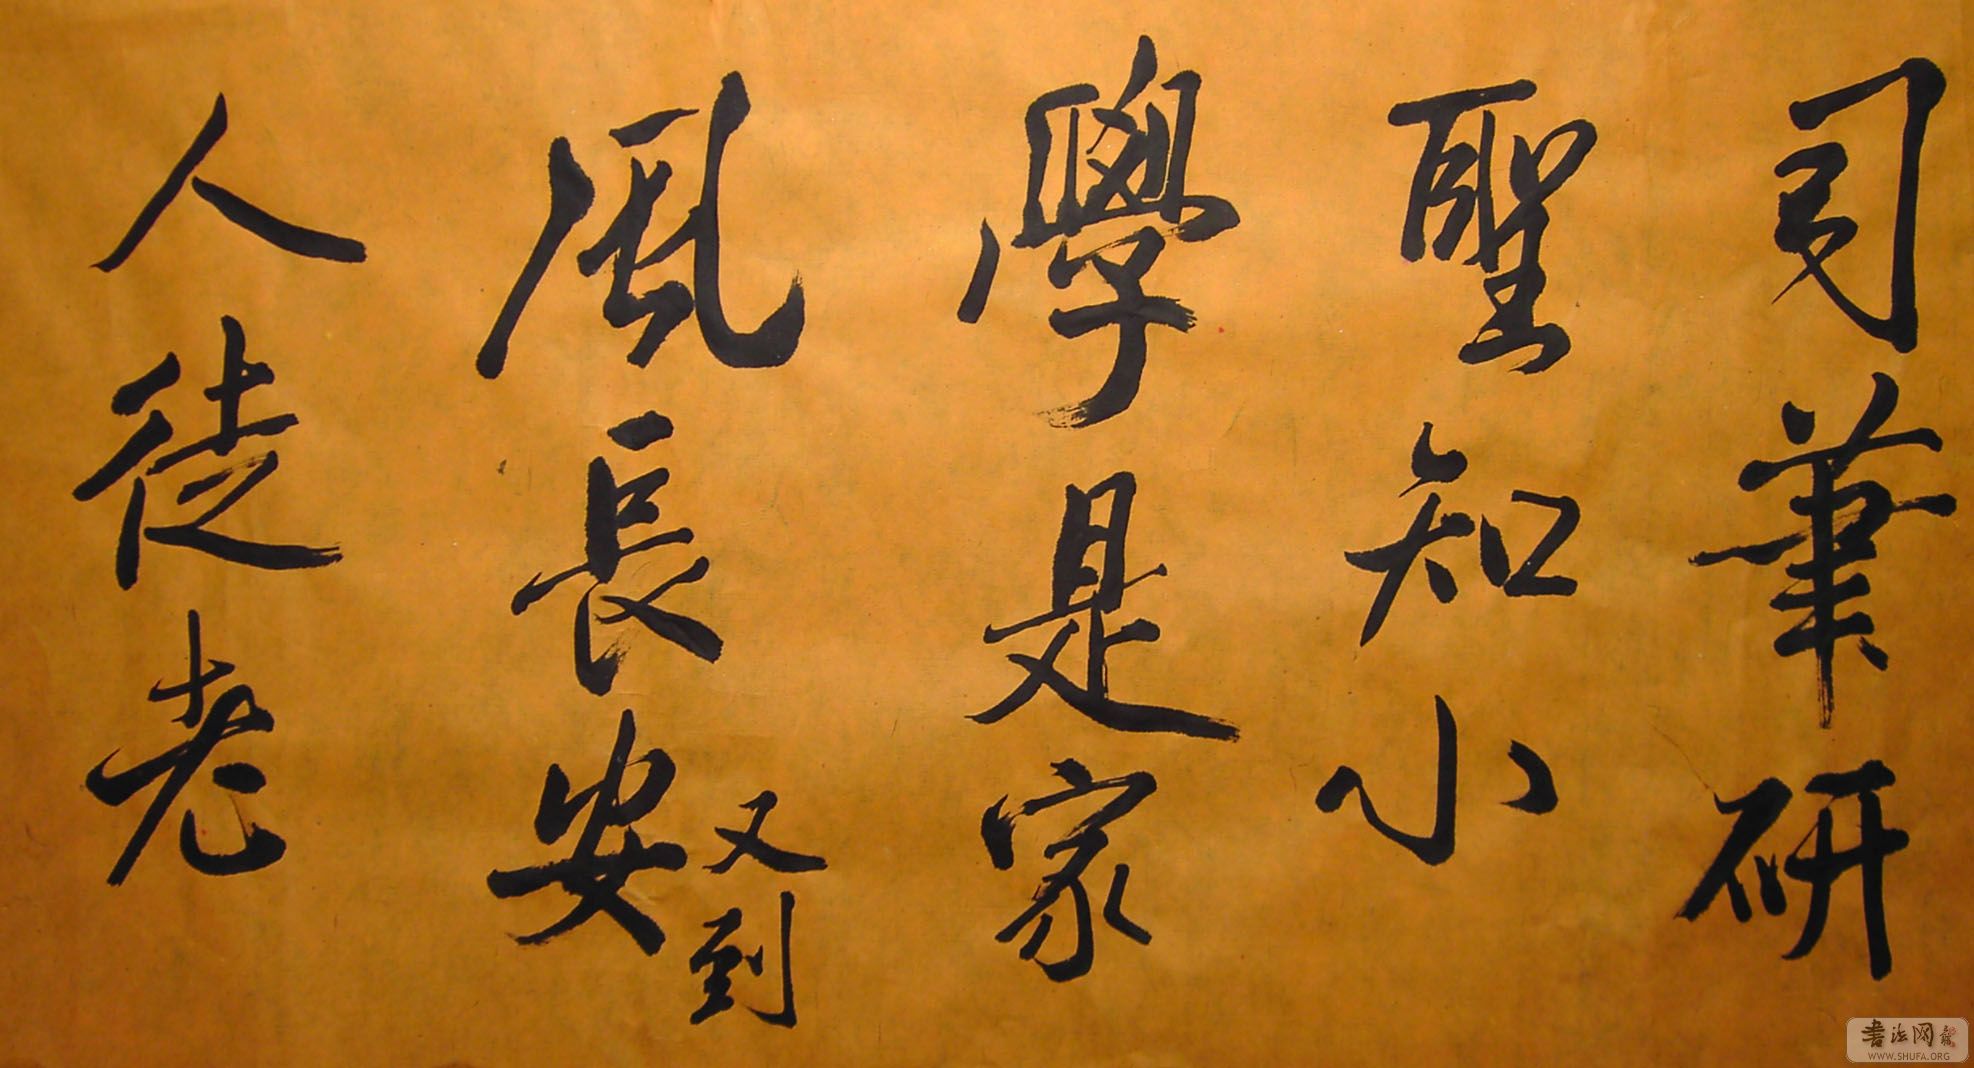 司筆研
聖知小
學是家
風長安
又到
人徒老
書法网
WWW.SHUFA.ORG